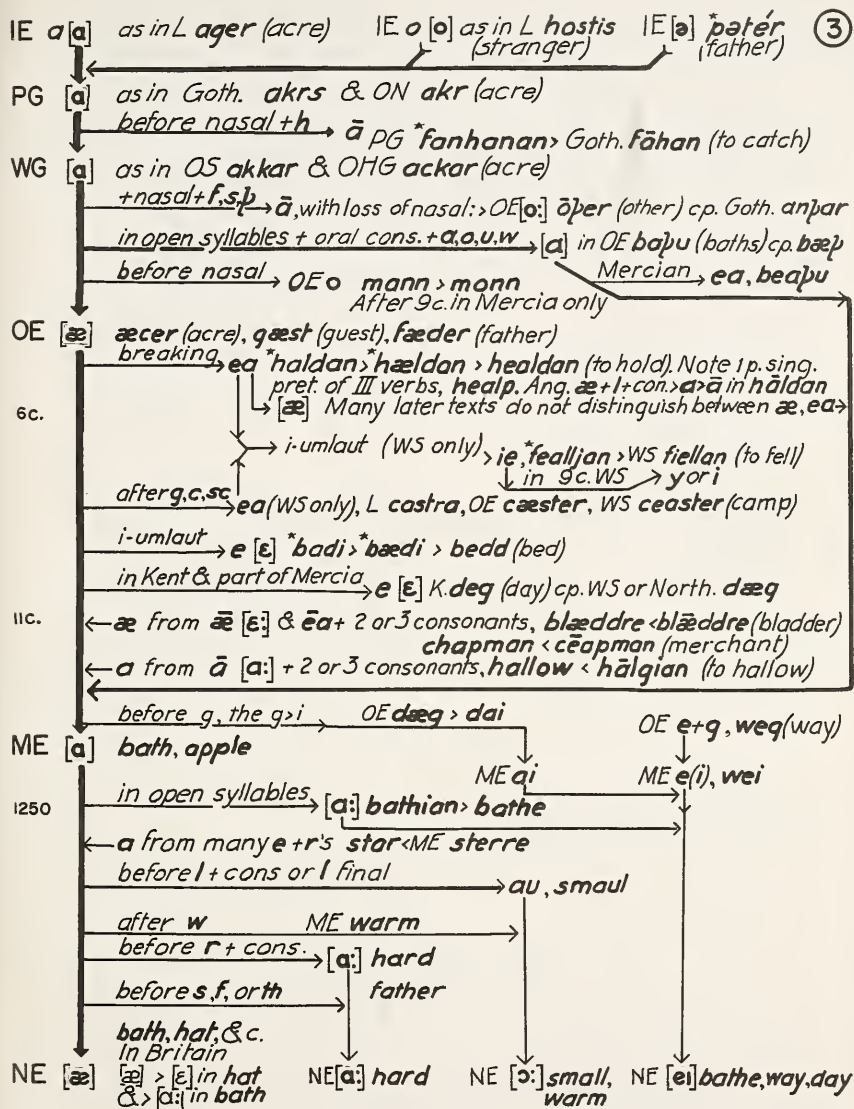 IE a [a] as in L ager (acre) IE o [o] as in L hostis (stranger) IE [ə] *pətér (father) ③
PG [a] as in Goth. akrs & ON akr (acre)
before nasal + h → ā PG *fanhanan > Goth. fāhan (to catch)
WG [a] as in OS akkar & OHG ackar (acre)
+nasal+f,s,þ → ā, with loss of nasal: > OE [o:] ōþer (other) cp. Goth. anþar
in open syllables + oral cons. + a,o,u,w → [a] in OE baþu (baths) cp. bæþ
before nasal → OE o mann > monn Mercian → ea, beaþu
After 9c. in Mercia only
OE [æ] æcer (acre), gæst (guest), fæder (father)
breaking → ea *haldan > *hældan > healdan (to hold). Note 1 p. sing.
pret. of III verbs, healp. Ang. æ+l+con. > a > ā in hāldan
6c. → [æ] Many later texts do not distinguish between æ, ea →
→ i-umlaut (WS only) > ie, *fealljan > WS fiellan (to fell)
in 9c. WS → y or i
after g, c, sc → ea (WS only), L castra, OE cæster, WS ceaster (camp)
i-umlaut → e [ɛ] *badi > *bædi > bedd (bed)
in Kent & part of Mercia → e [ɛ] K. deg (day) cp. WS or North. dæg
11c. ← æ from ǣ [ɛ:] & ēa + 2 or 3 consonants, blæddre < blǣddre (bladder)
chapman < cēapman (merchant)
← a from ā [a:] + 2 or 3 consonants, hallow < hālgian (to hallow)
before g, the g > i → OE dæg > dai OE e+g, weg (way)
ME [a] bath, apple
ME ai ME e(i), wei
1250 in open syllables → [a:] bathian > bathe
← a from many e+r's star < ME sterre
before l + cons or l final → au, smaul
after w ME warm →
before r + cons. → [a:] hard
before s, f, or th → father
bath, hat, &c.
In Britain
NE [æ] [æ] > [ɛ] in hat NE [a:] hard NE [ɔ:] small, warm NE [ei] bathe, way, day
& > [a:] in bath